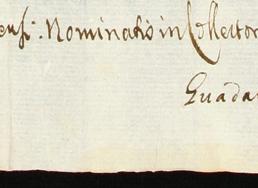 ensi: Nominatio in Collector
Guada